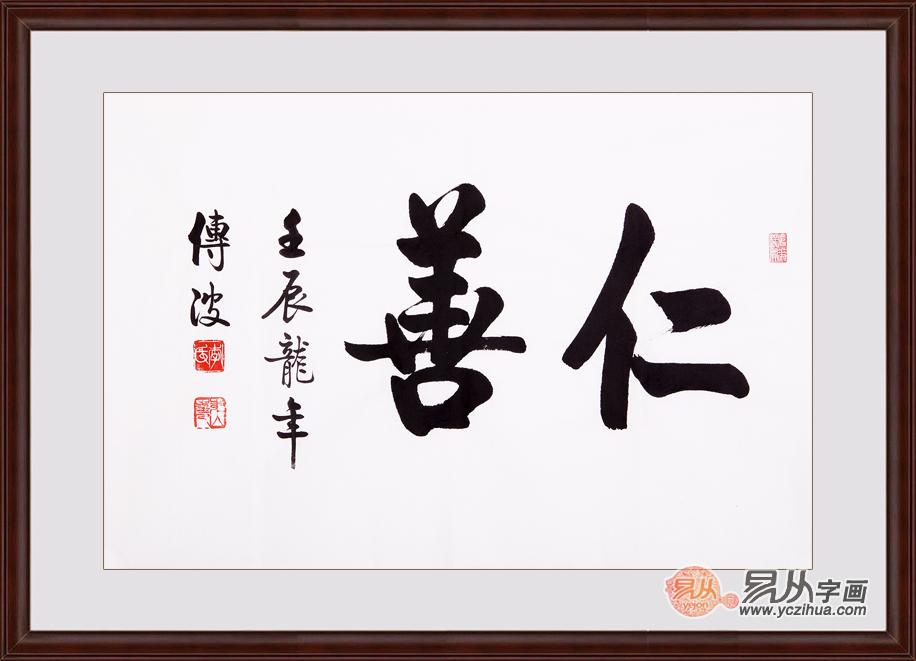 仁善
壬辰龍年
傳波
易从
yejon
易从字画
www.yczihua.com